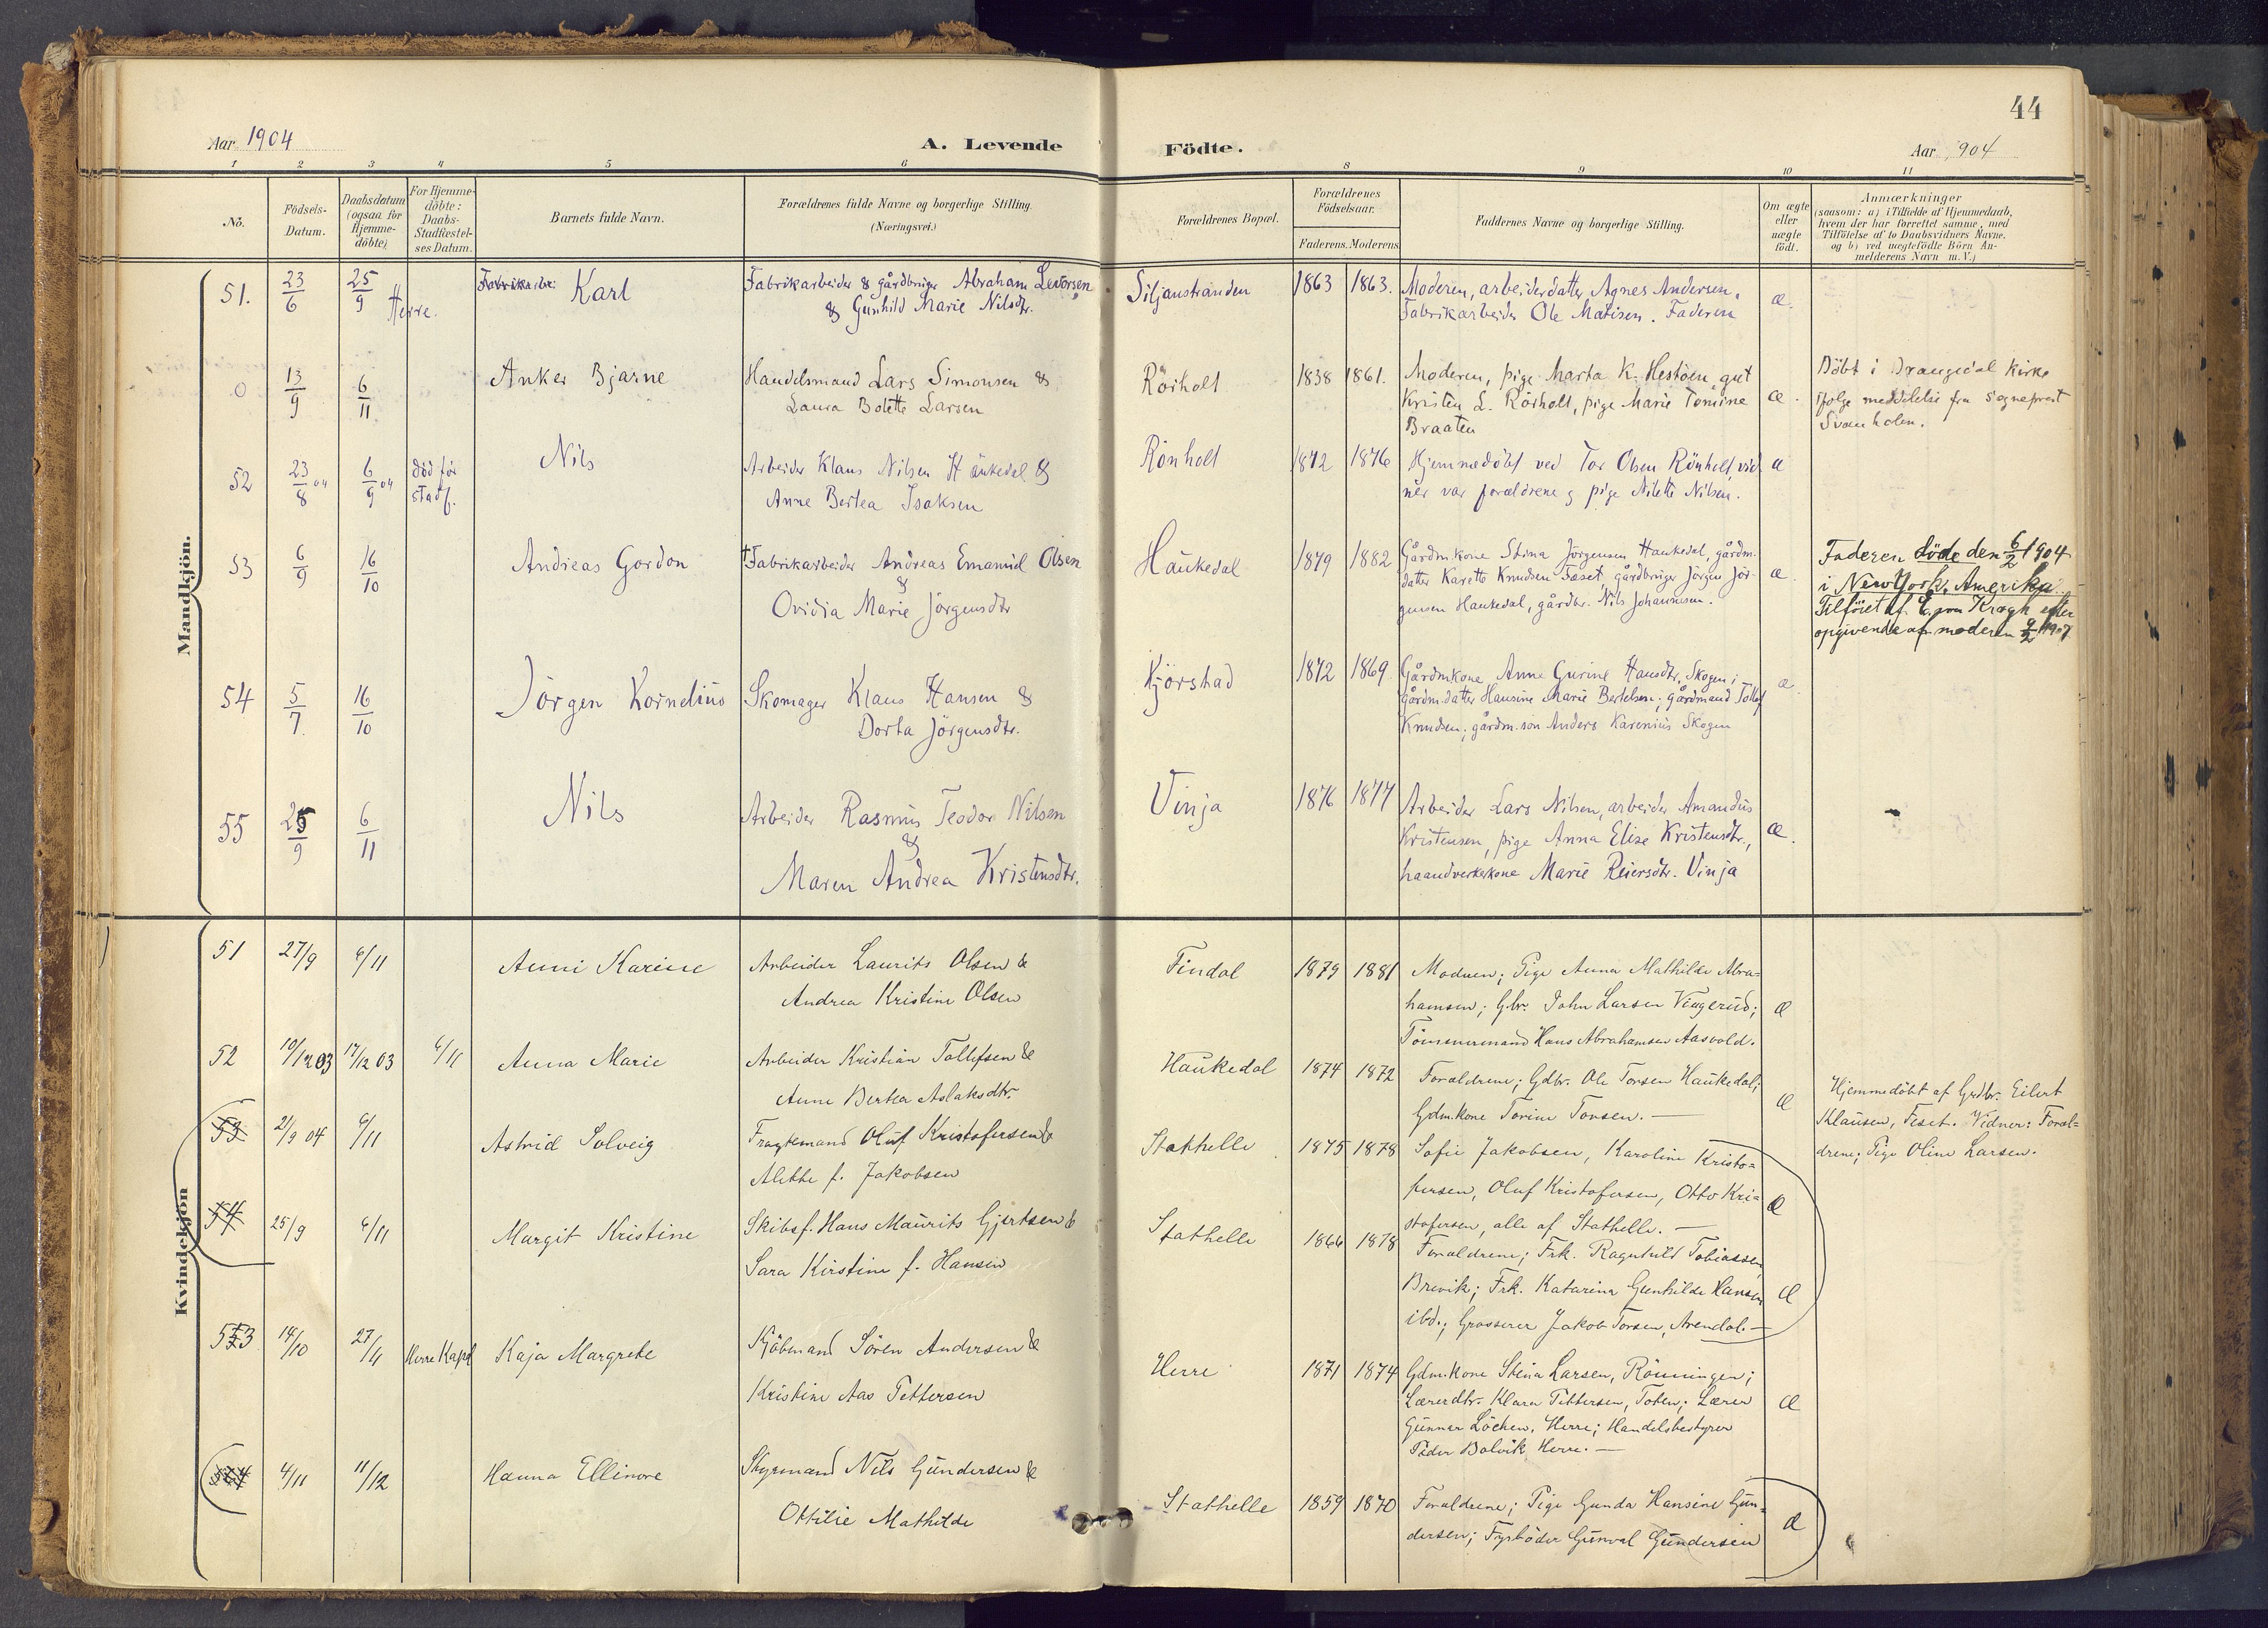 44
Aar 1904 A. Levende Födte. Aar 1904
1 2 3 4 5 6 8 9 10 11
No. Födsels-Datum. Daabsdatum (ogsaa for Hjemmedöbte) For Hjemmedöbte: Daabs-Stadfæstelses Datum. Barnets fulde Navn. Forældrenes fulde Navne og borgerlige Stilling. (Næringsvei.) Forældrenes Bopæl. Forældrenes Födselsaar. Faderens. Moderens Faddernes Navne og borgerlige Stilling. Om ægte eller uægte födt. Anmærkninger (saasom: a) i Tilfælde af Hjemmedaab, hvem der har forrettet samme, med Tilföielse af to Daabsvidners Navne. og b) ved uægtefödte Börn Anmelderens Navn m. V.)
Mandkjön.
51. 23/6 25/9 Herre. Karl Fabrikarbeider & gårdbruger Abraham Levorsen Siljanstranden 1863 1863. Moderen, arbeiderdatter Agnes Andersen, æ.
& Gunhild Marie Nilsdtr. Fabrikarbeider Ole Matisen. Faderen
0 13/9 6/11 Anker Bjarne Handelsmand Lars Simonsen & Rörholt 1838 1861. Moderen, pige Marta K. Hestöen, gut æ. Döbt i Drangedal Kirke
Laura Bolette Larsen Kristen L. Rörholt, pige Marie Tomine ifölge meddelelse fra sogneprest
Braaten Svanholen.
52 23/8 04 6/9 04 död før stadf. Nils Arbeider Klaus Nilsen Haukedal & Rönholt 1872 1876 Hjemmedöbt ved Tor Olsen Rönholt, vid æ
Anne Bertea Isaksen ner var forældrene g pige Nilette Nilsen.
53 6/9 16/10 Andreas Gordon †Fabrikarbeider Andreas Emanuel Olsen Haukedal 1879 1882 Gårdm.kone Stina Jörgensen Haukedal, gårdm. æ. Faderen döde den 6/2 1904
& datter Karette Knudsen Fæset, gårdbruger Jörgen Jör- i New York, Amerika.
Ovidia Marie Jörgensdtr gensen Haukedal, gårdbr. Nils Johannesen. Tilföiet af E. von Krogh efter
opgivende af moderen 9/2 1907
54 5/7. 16/10 Jörgen Kornelius Skomager Klaus Hansen & Kjörstad 1872 1869 Gårdmkone Anne Gurine Hansdtr. Skogen; æ.
Dorta Jörgensdtr. gårdm.datter Hansine Marie Bertelsen; gårdmand Tollef
Knudsen; gårdm.sön Anders Karenius Skogen
55 25/9 6/11 Nils Arbeider Rasmus Teodor Nilsen Vinja 1876 1877 Arbeider Lars Nilsen, arbeider Amandus æ.
& Kristensen, pige Anna Elise Kristensdtr.,
Maren Andrea Kristensdtr. haandverkerkone Marie Reiersdtr. Vinja
Kvindekjön
51 27/9 6/11 Anni Karine Arbeider Laurits Olsen & Findal 1879 1881 Moderen; Pige Anna Mathilde Abra- æ
Andrea Kristine Olsen hamsen; Gbr. John Larsen Vingerud;
Tömmermand Hans Abrahamsen Aasvold.
52 10/12 03 17/12 03 6/11 Anna Marie Arbeider Kristian Tollefsen & Haukedal 1874 1872 Forældrene; Gdbr. Ole Torsen Haukedal; æ Hjemmedöbt af Grdbr. Eilert
Anne Bertea Aslaksdtr. Gdm.kone Torine Torsen. — Klausen, Feset. Vidner: Foræl-
drene; Pige Oline Larsen.
53 2/9 04 6/11 Astrid Solveig Fragtemand Oluf Kristofersen & Stathelle 1875 1878 Sofie Jakobsen, Karoline Kristo- æ
Alette f. Jakobsen fersen, Oluf Kristofersen, Otto Kri-
stofersen, alle af Stathelle. —
54 25/9 6/11 Margit Kristine Skibsf. Hans Maurits Gjertsen & Stathelle 1866 1878 Forældrene; Frk. Ragnhild Tobiassen æ
Sara Kirstine f. Hansen Brevik; Frk. Katarina Gunhilde Hansen
ibd.; Grosserer Jakob Torsen, Arendal. —
53 14/10 27/11 Herre Kapel Kaja Margrete Kjöbmand Sören Andersen & Herre 1871 1874 Gdm.kone Stina Larsen, Rönningen; æ
Kristine Aas Pettersen Lærerdtr. Klara Pettersen, Toten; Lærer
Gunnar Löchen, Herre; Handelsbestyrer
Peder Bolvik, Herre. —
4/11 11/12 Hanna Ellinore Styrmand Nils Gundersen & Stathelle 1859 1870 Forældrene; Pige Gunda Hansine Gun- æ
Ottilie Mathilde dersen; Fyrböder Gunval Gundersen